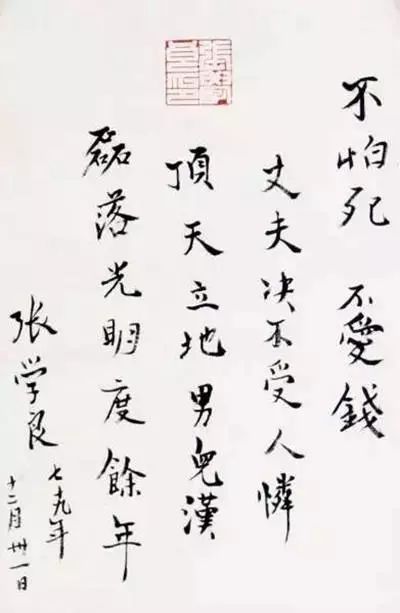 不怕死 不愛錢
丈夫决不受人憐
頂天立地男兒漢
磊落光明度餘年
张学良 七九年
十二月卅一日